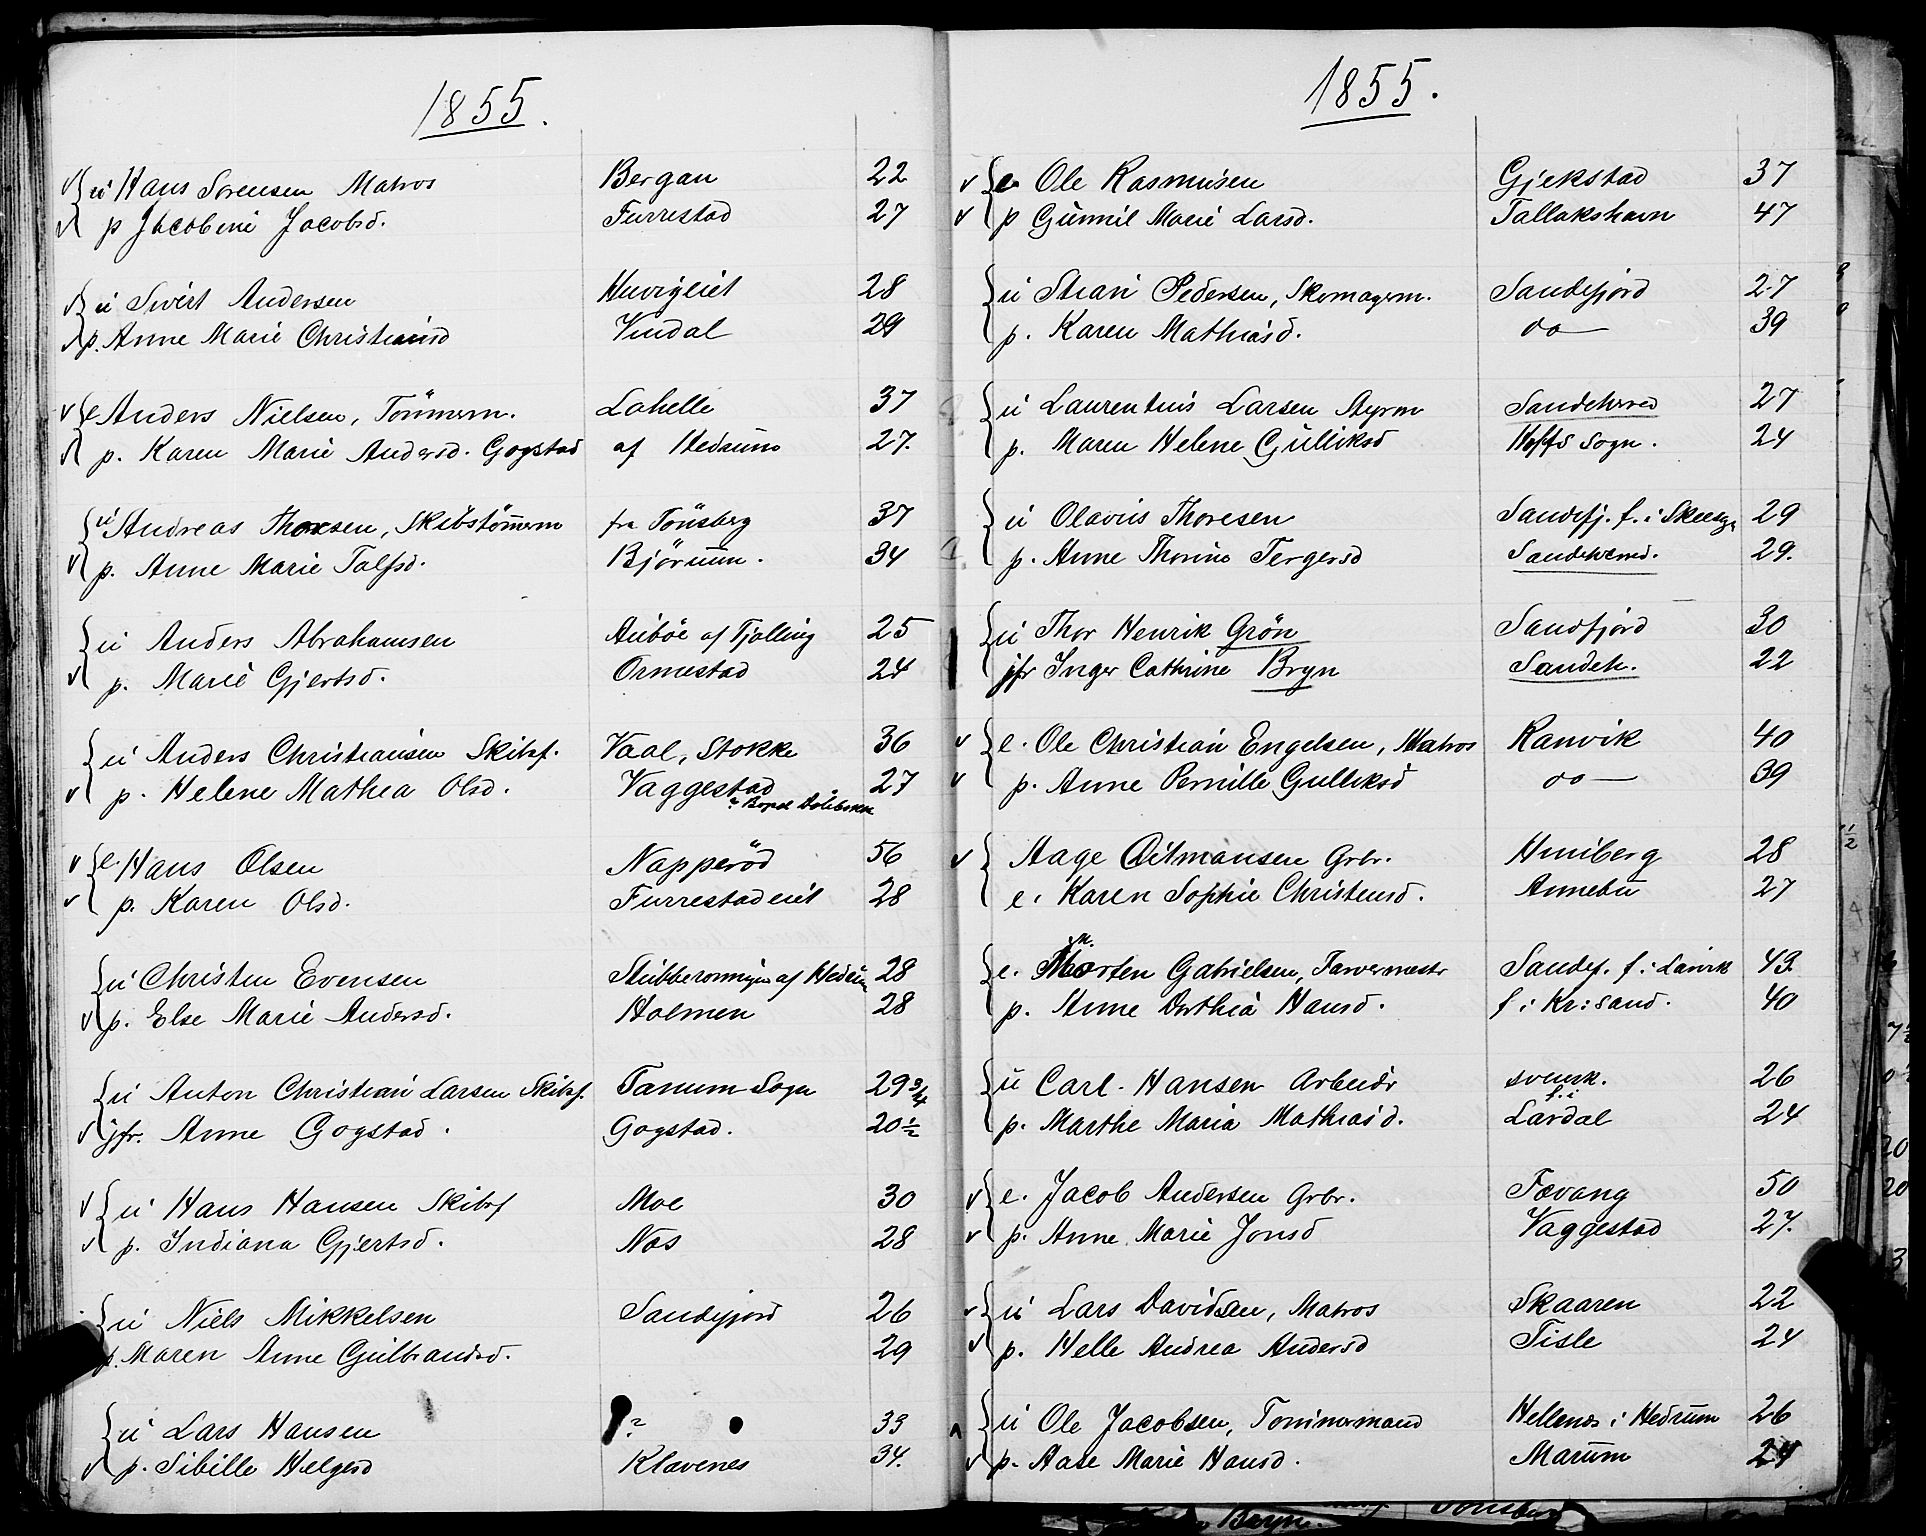 1855.
u Hans Sørensen Matros Bergan 22
p Jacobine Jacobsd. Furrestad 27
u Sivert Andersen 28
p. Anne Marie Christiansd Vindal 29
e Anders Nielsen, Tömmerm. Lahelle 37
p. Karen Marie Andersd. Gogstad af Hedrum 27.
u Andreas Thoresen, Skibstömerm fra Tönsberg 37
p. Anne Marie Talfsd. Bjørum. 34
u Anders Abrahamsen Auböe af Tjølling 25
p. Marie Gjertsd. Ormestad 24
u Anders Christiansen Skibsf. Vaal, Stokke 36
p. Helene Mathea Olsd. Vaggestad 27
e. Hans Olsen Napperöd 56
p. Karen Olsd. Furrestadeiet 28
u Christen Evensen af Hedrum 28
p. Else Marie Andersd. Holmen 28
u Anton Christian Larsen Skibsf. Tanum Sogn 29 3/4
jfr. Anne Gogstad. Gogstad. 20 1/2
u Hans Hansen Skibsf Moe 30
p. Indiana Gjertsd. Næs 28
u Niels Mikkelsen Sandefjord 26
p. Maren Anne Gulbrandsd. 29
u Lars Hansen ? 33
p. Sibille Helgesd Klavenes 34.
1855.
e Ole Rasmusen Gjekstad 37
p Gunnil Marie Larsd. Tallakshavn 47
u Stian Pedersen, Skomagerm. Sandefjord 27
p. Karen Mathiasd. do 39
u Laurentius Larsen Styrm Sandeherred 27
p. Maren Helene Gulliksd Hoffs Sogn. 24
u Olavus Thoresen Sandefj. f. i Skeesg. 29
p. Anne Thorine Tergersd Sandeherred. 29.
u Thor Henrik Grön Sandfjord 30
jfr Inger Cathrine Bryn Sandeh. 22
e. Ole Christian Engelsen, Matros Ranvik 40
p. Anne Pernille Gulliksd do 39
Aage Ditmansen Grbr. Huuiberg 28
e. Karen Sophie Christensd. Annebu 27
e. Morten Gabrielsen, Farvermestr Sandef. f. i Larvik 43.
p. Anne Dorthia Hansd. f. i Kr:sand. 40
u Carl Hansen Arbeidr svensk. 26
p. Marthe Maria Mathiasd. f. i Lardal 24
e. Jacob Andersen Grbr. Fevang 50
p. Anne Marie Jonsd Vaggestad 27.
u Lars Davidsen, Matros Skaaren 22
p. Helle Andrea Andersd Tisle 24
u Ole Jacobsen, Tommermand Hellenæs i Hedrum 26
p. Aase Marie Hansd. Marum 24